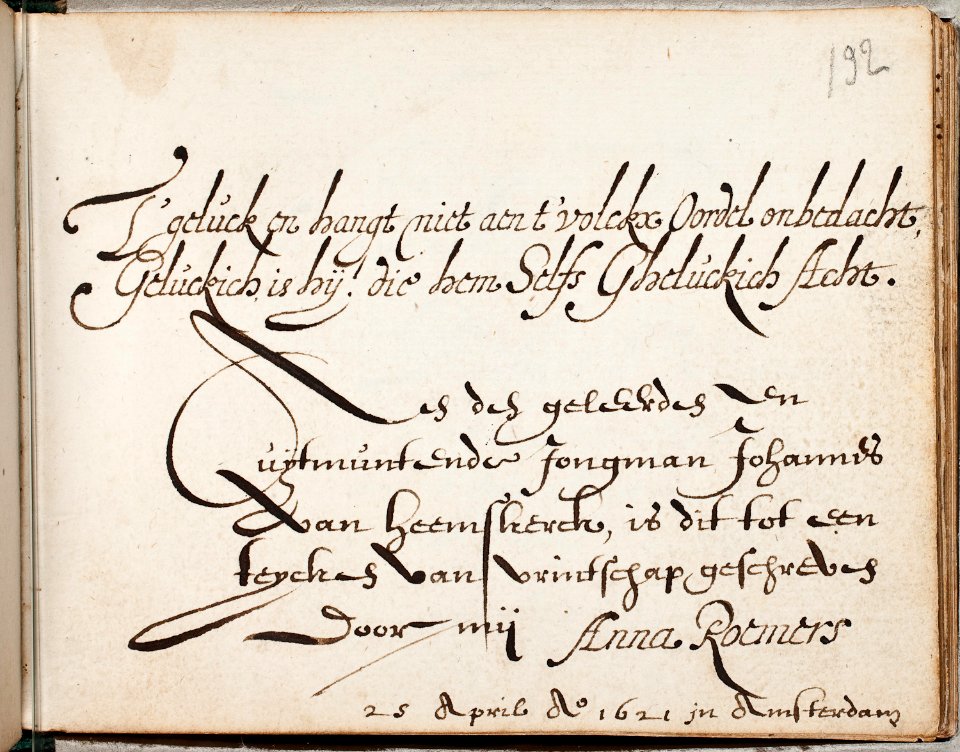 192
T'geluck en hangt niet aen t'volckx Oordel onbedacht,
Geluckich is hij! die hem Selfs Gheluckich Acht.
den geleerden en
uÿtmuntende Jongman Johannes
van heemskerck, is dit tot een
teycken van vrintschap geschreven
Door mij Anna Roemers
25 April Ao 1621 in Amsterdam